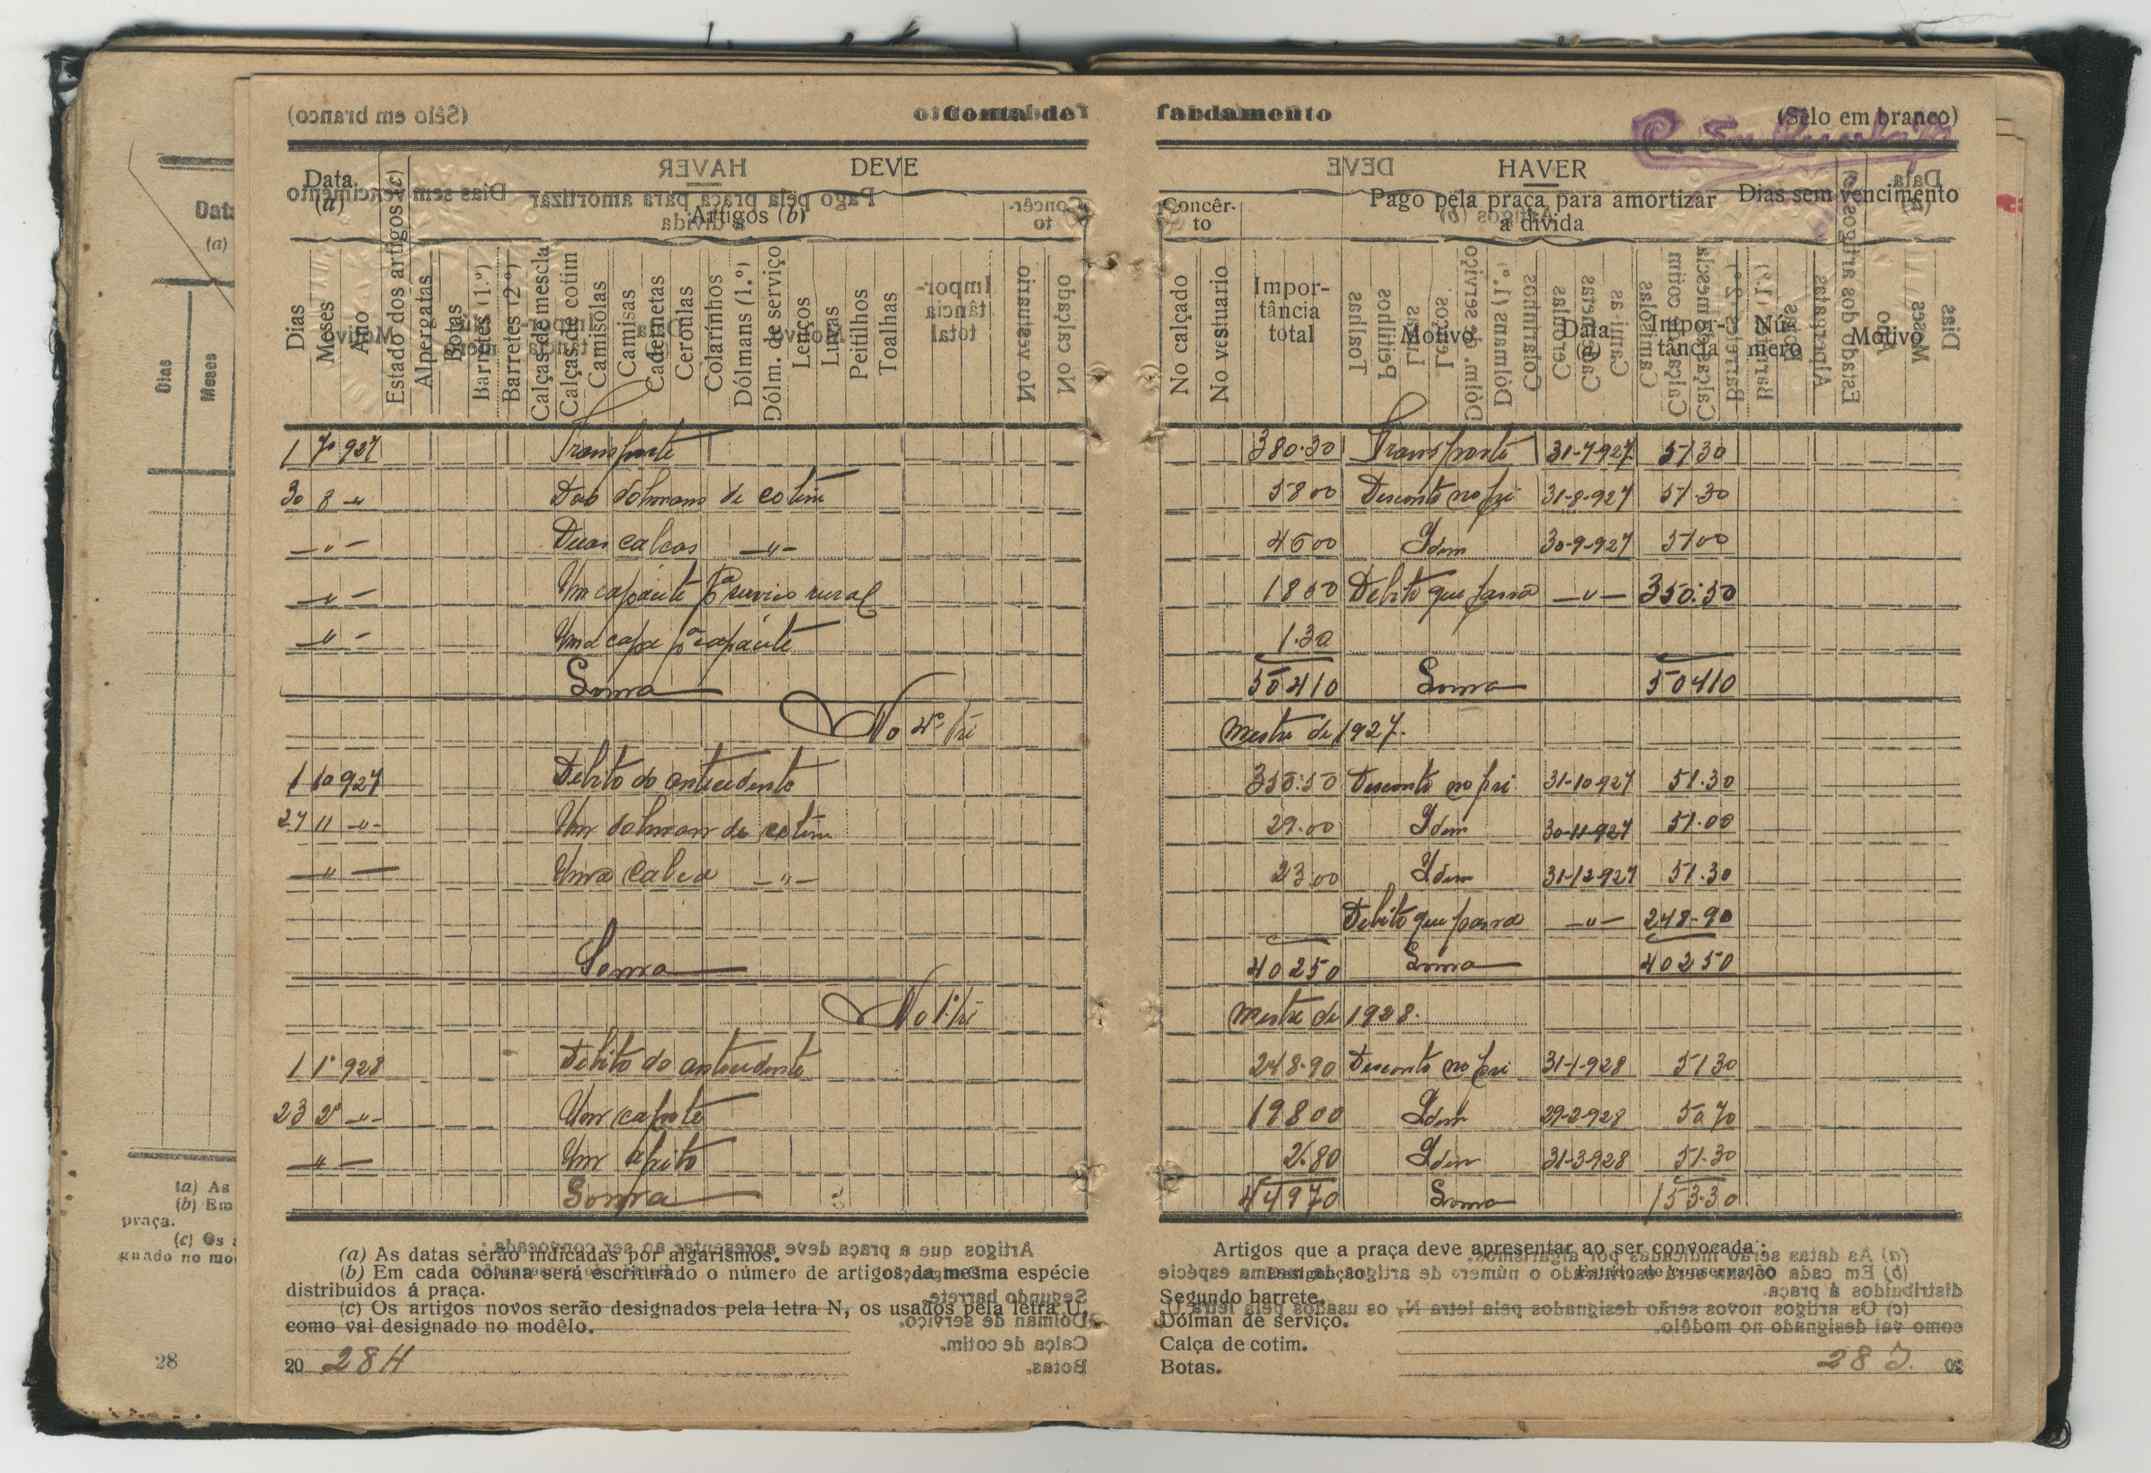 Conta de fardamento
(Sêlo em branco)
DEVE
HAVER
Data
(a)
Artigos (b)
Concêrto
Pago pela praça para amortizar
a divida
Dias sem vencimento
Dias
Meses
Ano
Estado dos artigos (c)
Alpergatas
Botas
Barretes (1.º)
Barretes (2.º)
Calças de mescla
Calças de cotim
Camisolas
Camisas
Cadernetas
Ceroulas
Colarinhos
Dólmans (1.º)
Dólm. de serviço
Lenços
Luvas
Peitilhos
Toalhas
No calçado
No vestuario
Impor-
tância
total
Motivo
Data
(a)
Impor-
tância
Nú-
mero
Motivo
1 7º 927 Transporte 380.30 Transporte 31-7-927 51 30
30 8 -"- Dois dolmans de cotim 58 00 Desconto no pré 31-8-927 51.30
-"- Duas calcas -"- 46 00 Idem 30-9-927 51 00
-"- Um capacete pª serviço rural 18 50 Debito que passa -"- 350:50
-"- Uma capa pª capacete 1.30
Soma 504 10 Soma 504 10
No 4º tri mestre de 1927.
1 10 927 Debito do antecedente 350:50 Desconto no pré 31-10-927 51.30
27 11 -"- Um dolmam de cotim 29.00 Idem 30-11-927 51.00
-"- Uma calca -"- 23 00 Idem 31-12-927 51.30
Debito que passa -"- 248.90
Soma 402 50 Soma 402 50
No 1º tri mestre de 1928.
1 1º 928 Debito do antecedente 248.90 Desconto no pré 31-1-928 51 30
23 2º -"- Um capote 198 00 Idem 29-2-928 50 70
-"- Um apito 2.80 Idem 31-3-928 51.30
Soma 449 70 Soma 153.30
(a) As datas serão indicadas por algarismos.
(b) Em cada coluna será escriturado o número de artigos da mesma espécie
distribuidos á praça.
(c) Os artigos novos serão designados pela letra N, os usados pela letra U,
como vai designado no modêlo.
20 28 H
Artigos que a praça deve apresentar ao ser convocada:
Designação
Estado de conservação
Segundo barrete.
Dólman de serviço.
Calça de cotim.
Botas.
28 I.
Data
(a)
Dias
Meses
(a) As
(b) Em
praça.
(c) Os
guado no mo
28